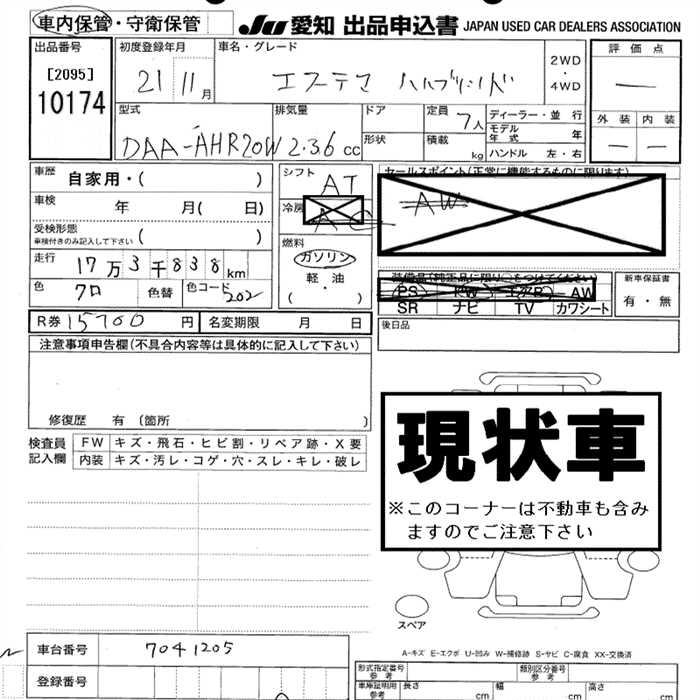 車内保管・守衛保管 JU 愛知 出品申込書 JAPAN USED CAR DEALERS ASSOCIATION
出品番号 初度登録年月 車名・グレード 2WD ・ 4WD 評価点
[2095] 10174 21 11月 エスティマ ハイブリッド —
型式 排気量 ドア 定員 7人 ディーラー・並行 外装 内装
DAA-AHR20W 2.36cc 形状 積載 kg モデル年式 年 — —
ハンドル 左・右
車歴 自家用・( ) シフト AT セールスポイント(正常に機能するものに限ります)
車検 年 月( 日) 冷房 AC AW
受検形態 車検付きのみ記入して下さい ( ) 燃料
走行 17万3千838km ガソリン 軽油 ・( )
装備品(純正品に限り○をつけてください) 新車保証書
PS PW エアB AW 有・無
色 クロ 色替 色コード 202 SR ナビ TV カワシート
R券 15700円 名変期限 月 日 後日品
注意事項申告欄(不具合内容等は具体的に記入して下さい)
修復歴 有 (箇所 )
検査員記入欄 FW キズ・飛石・ヒビ割・リペア跡・X要
内装 キズ・汚レ・コゲ・穴・スレ・キレ・破レ
現状車
※このコーナーは不動車も含み
ますのでご注意下さい
スペア
A-キズ E-エクボ U-凹み W-補修跡 S-サビ C-腐食 XX-交換済
車台番号 7041205
登録番号
形式指定番号 参考 類別区分番号 参考
車庫証明用 参考 長さ cm 幅 cm 高さ cm